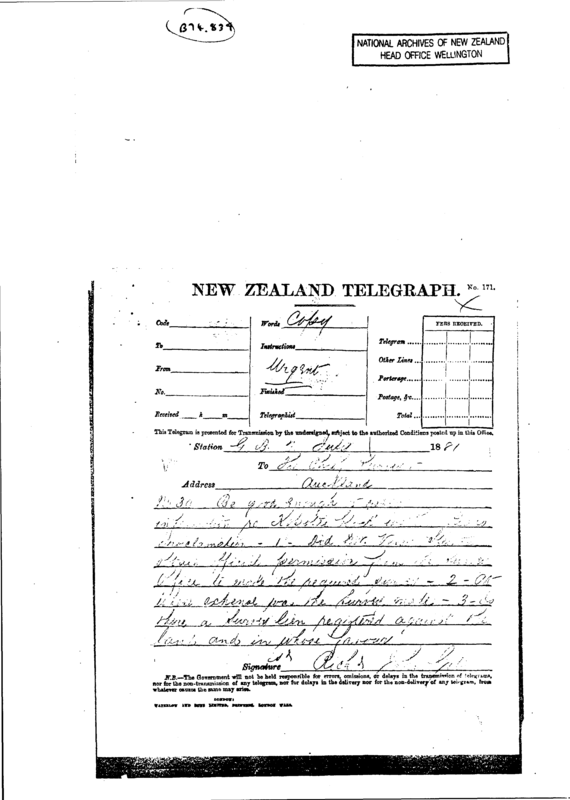 B74.834
NATIONAL ARCHIVES OF NEW ZEALAND
HEAD OFFICE WELLINGTON
NEW ZEALAND TELEGRAPH. No. 171.
Code
Words Copy
FEES RECEIVED.
To
Instructions
Telegram
Other Lines
From
Urgent
Porterage
No.
Finished
Postage, &c.
Received h m
Telegraphist
Total
This Telegram is presented for Transmission by the undersigned, subject to the authorized Conditions posted up in this Office.
Station G. B. July 1881
To The Chief
Address Auckland
No 30 Be good enough
information re Block
proclamation - 1 - Did
official permission from
before he made the required survey - 2 - At
whose expense was the survey made - 3 - Is
there a survey lien registered against the
land and in whose favour
Signature Richd
N.B.—The Government will not be held responsible for errors, omissions, or delays in the transmission of telegrams,
nor for the non-transmission of any telegram, nor for delays in the delivery nor for the non-delivery of any telegram, from
whatever causes the same may arise.
LONDON:
WATERLOW AND SONS LIMITED, PRINTERS, LONDON WALL.